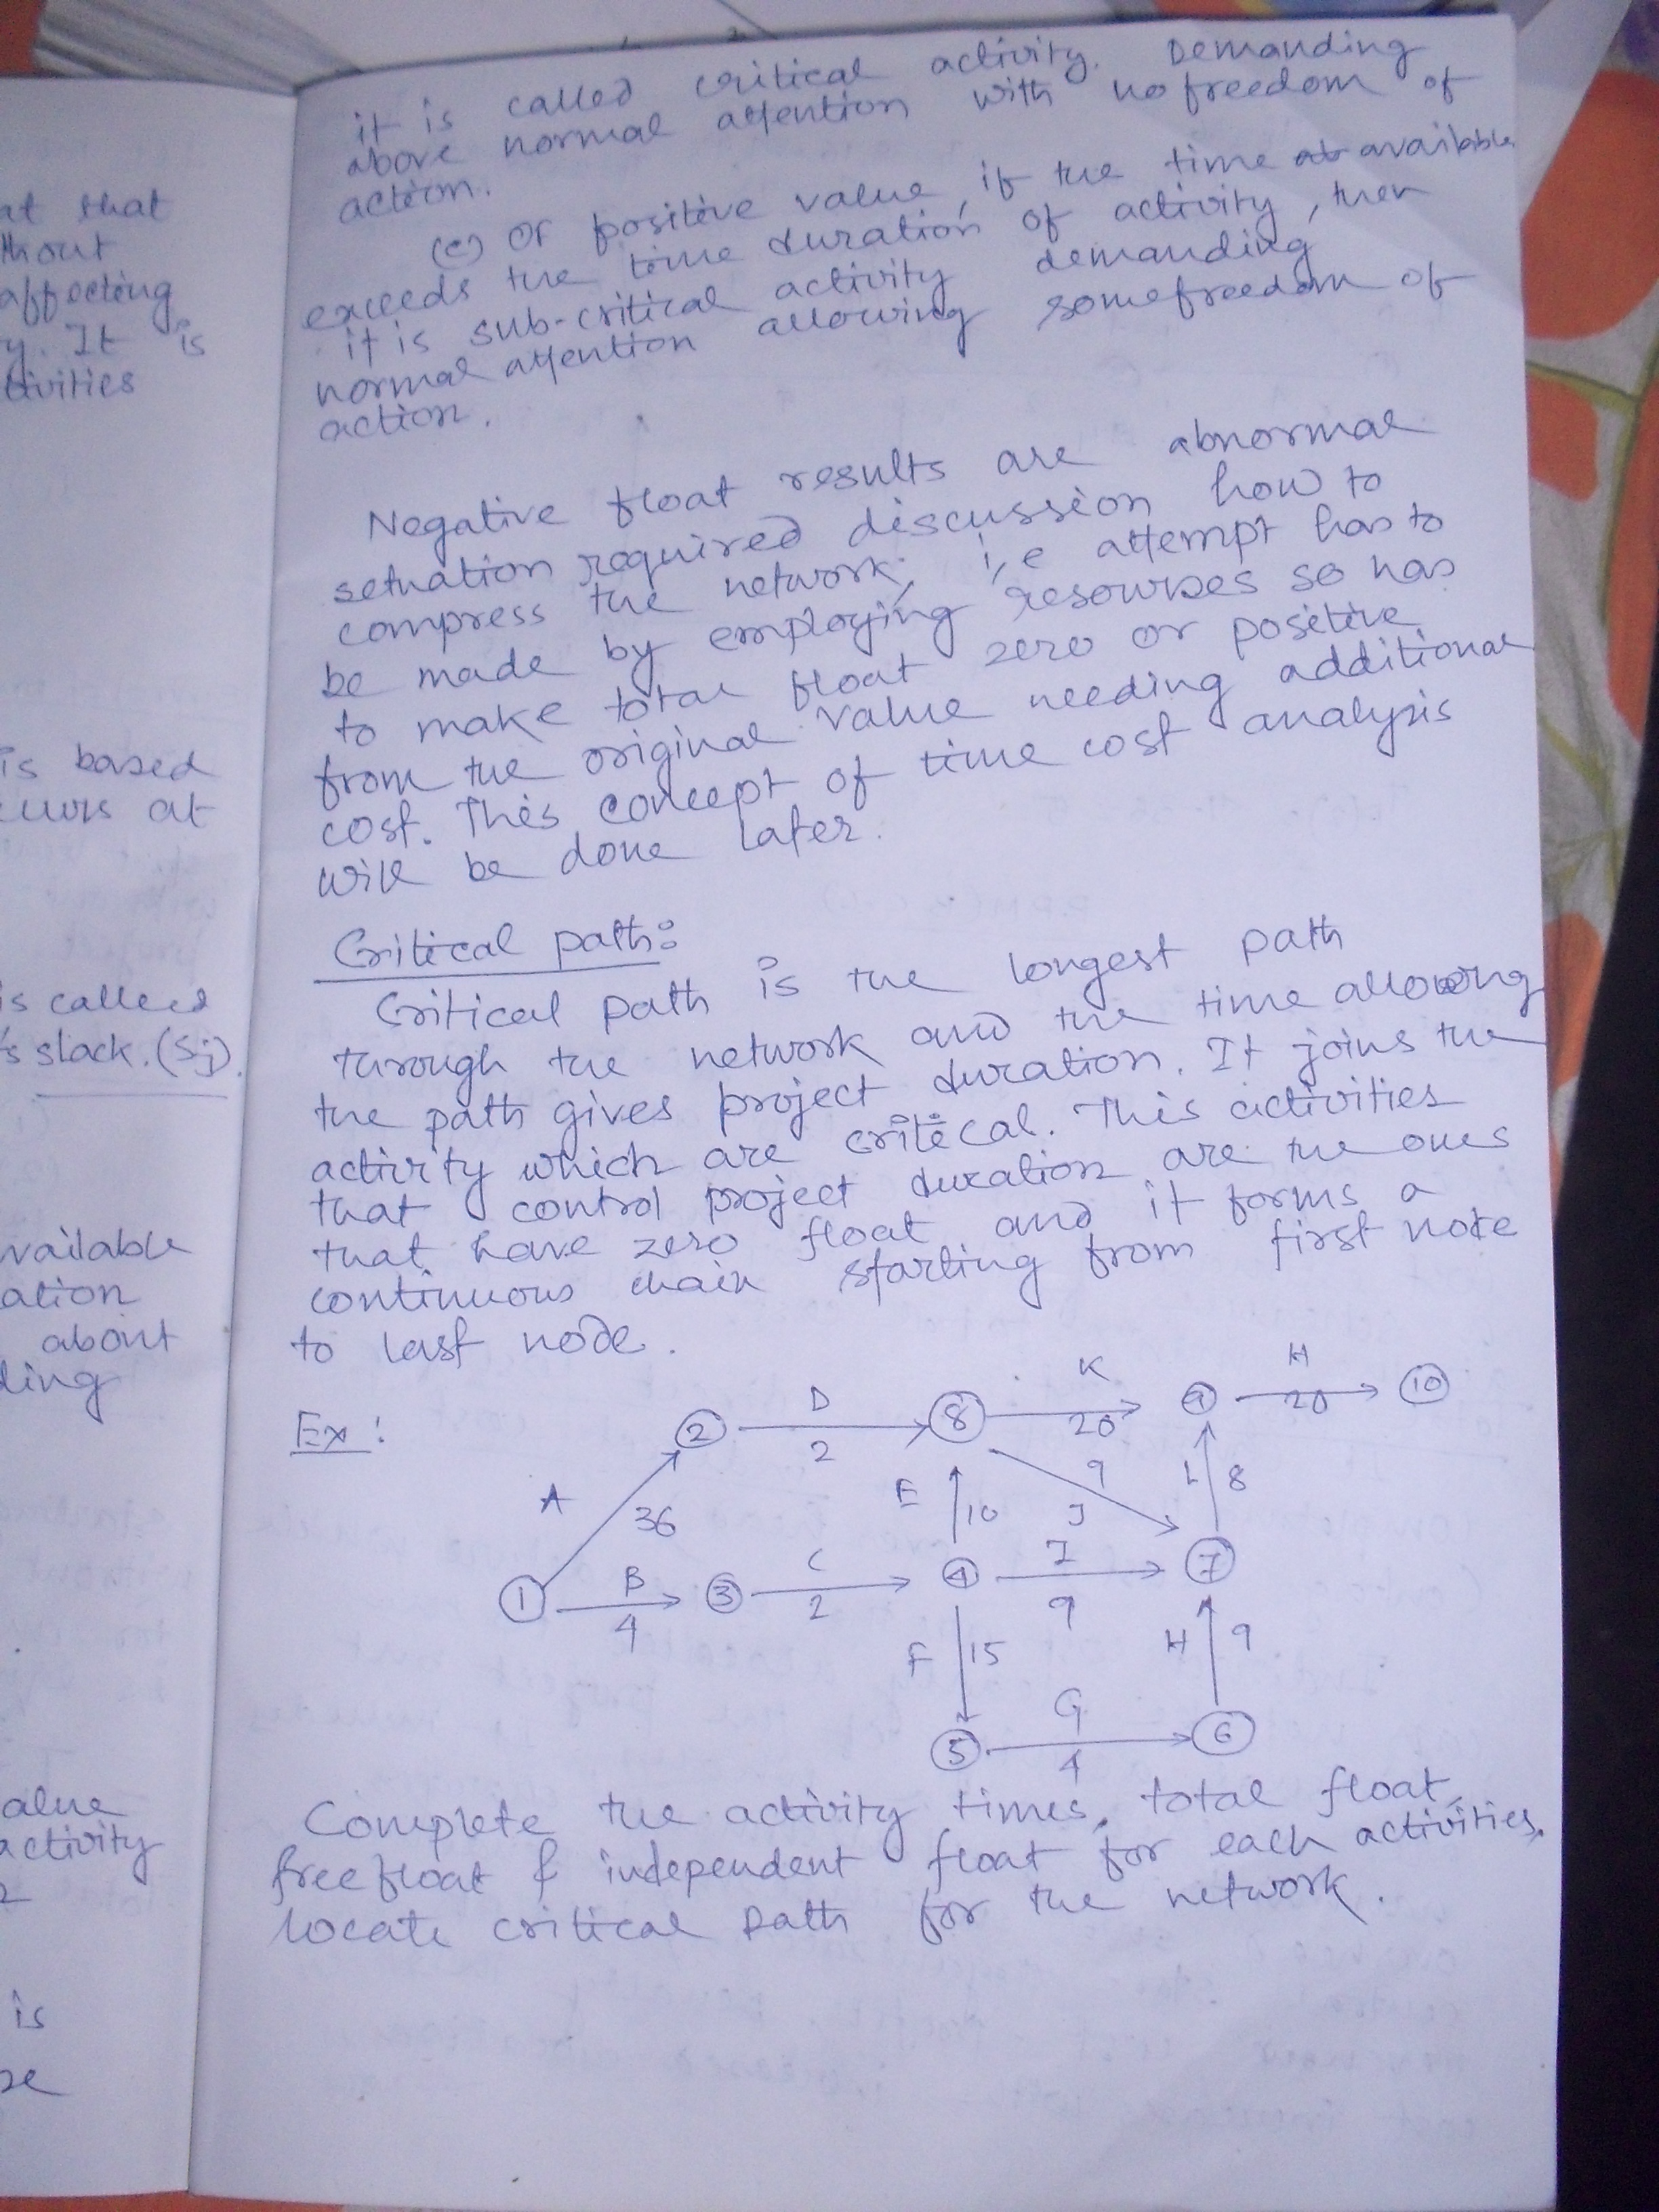 at that
thout
affecting
y. It is
tivities
is based
curs at
is called
's slack. (Sj).
vailable
ation
about
ding
alue
activity
is
it is called critical activity. Demanding
above normal attention with no freedom of
action.
(c) Of positive value, if the time at available
exceeds the time duration of activity, then
it is sub-critical activity demanding
normal attention allowing some freedom of
action.
Negative float results are abnormal
setuation required discussion how to
compress the network, i,e attempt has to
be made by employing resourses so has
to make total float zero or positive
from the original value needing additional
cost. This concept of time cost analysis
will be done later.
Critical path:
Critical path is the longest path
through the network and the time allowing
the path gives project duration. It joins the
activity which are critical. This activities
that control project duration are the ones
that have zero float and it forms a
continuous chain starting from first note
to last node.
Ex:
K H
D
2 8 9 10
2 20 20
A E 9 L 8
36 10 J
C I
B
1 3 4 7
4 2 9
F 15 H 9
G
5 6
4
Complete the activity times, total float,
free float & independent float for each activities.
locate critical path for the network.